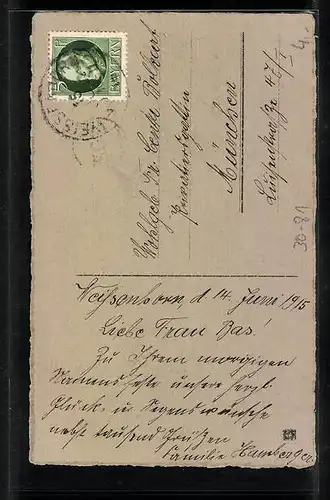 5 PF
BAYERN
WEISSE
Wohlgeb. Fr. Centa
München
Weißenhorn d 14. Juni 1915
Liebe Frau Bas!
Zu Ihrem morgigen
Namensfeste unsere herzl.
Glück- u. Segenswünsche
nebst tausend Grüßen
Familie Hamberger
30-21